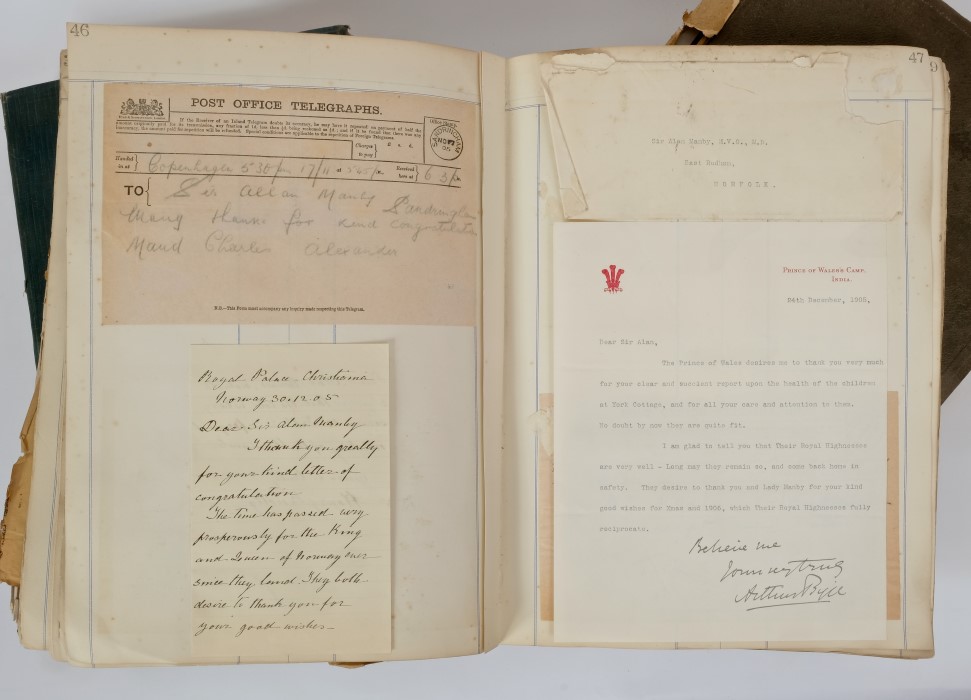 46
POST OFFICE TELEGRAPHS.
If the Receiver of an Inland Telegram doubts its accuracy, he may have it repeated on payment of half the
amount originally paid for its transmission, any fraction of 1d. less than ½d. being reckoned as ½d.; and if it be found that there was any
inaccuracy, the amount paid for repetition will be refunded. Special conditions are applicable to the repetition of Foreign Telegrams.
Charges to pay
SANDRINGHAM
NO 17
05
Handed in at
Copenhagen 5 30 pm 17/11
Received here at
6 3
TO
Sir Allan Manby Sandringham
Many thanks for kind congratulation
Maud Charles Alexander
N.B.—This Form must accompany any inquiry made respecting this Telegram.
Royal Palace Christiania
Norway 30.12.05
Dear Sir Alan Manby
I thank you greatly
for your kind letter of
congratulation
The time has passed very
prosperously for the King
and Queen of Norway ever
since they land. They both
desire to thank you for
your good wishes
47
9
Sir Alan Manby, M.V.O., M.D.
East Rudham,
NORFOLK.
PRINCE OF WALES'S CAMP,
INDIA.
24th December, 1905,
Dear Sir Alan,
The Prince of Wales desires me to thank you very much
for your clear and succinct report upon the health of the children
at York Cottage, and for all your care and attention to them.
No doubt by now they are quite fit.
I am glad to tell you that Their Royal Highnesses
are very well - Long may they remain so, and come back home in
safety. They desire to thank you and Lady Manby for your kind
good wishes for Xmas and 1906, which Their Royal Highnesses fully
reciprocate.
Believe me
Yours very truly
Arthur Bigge